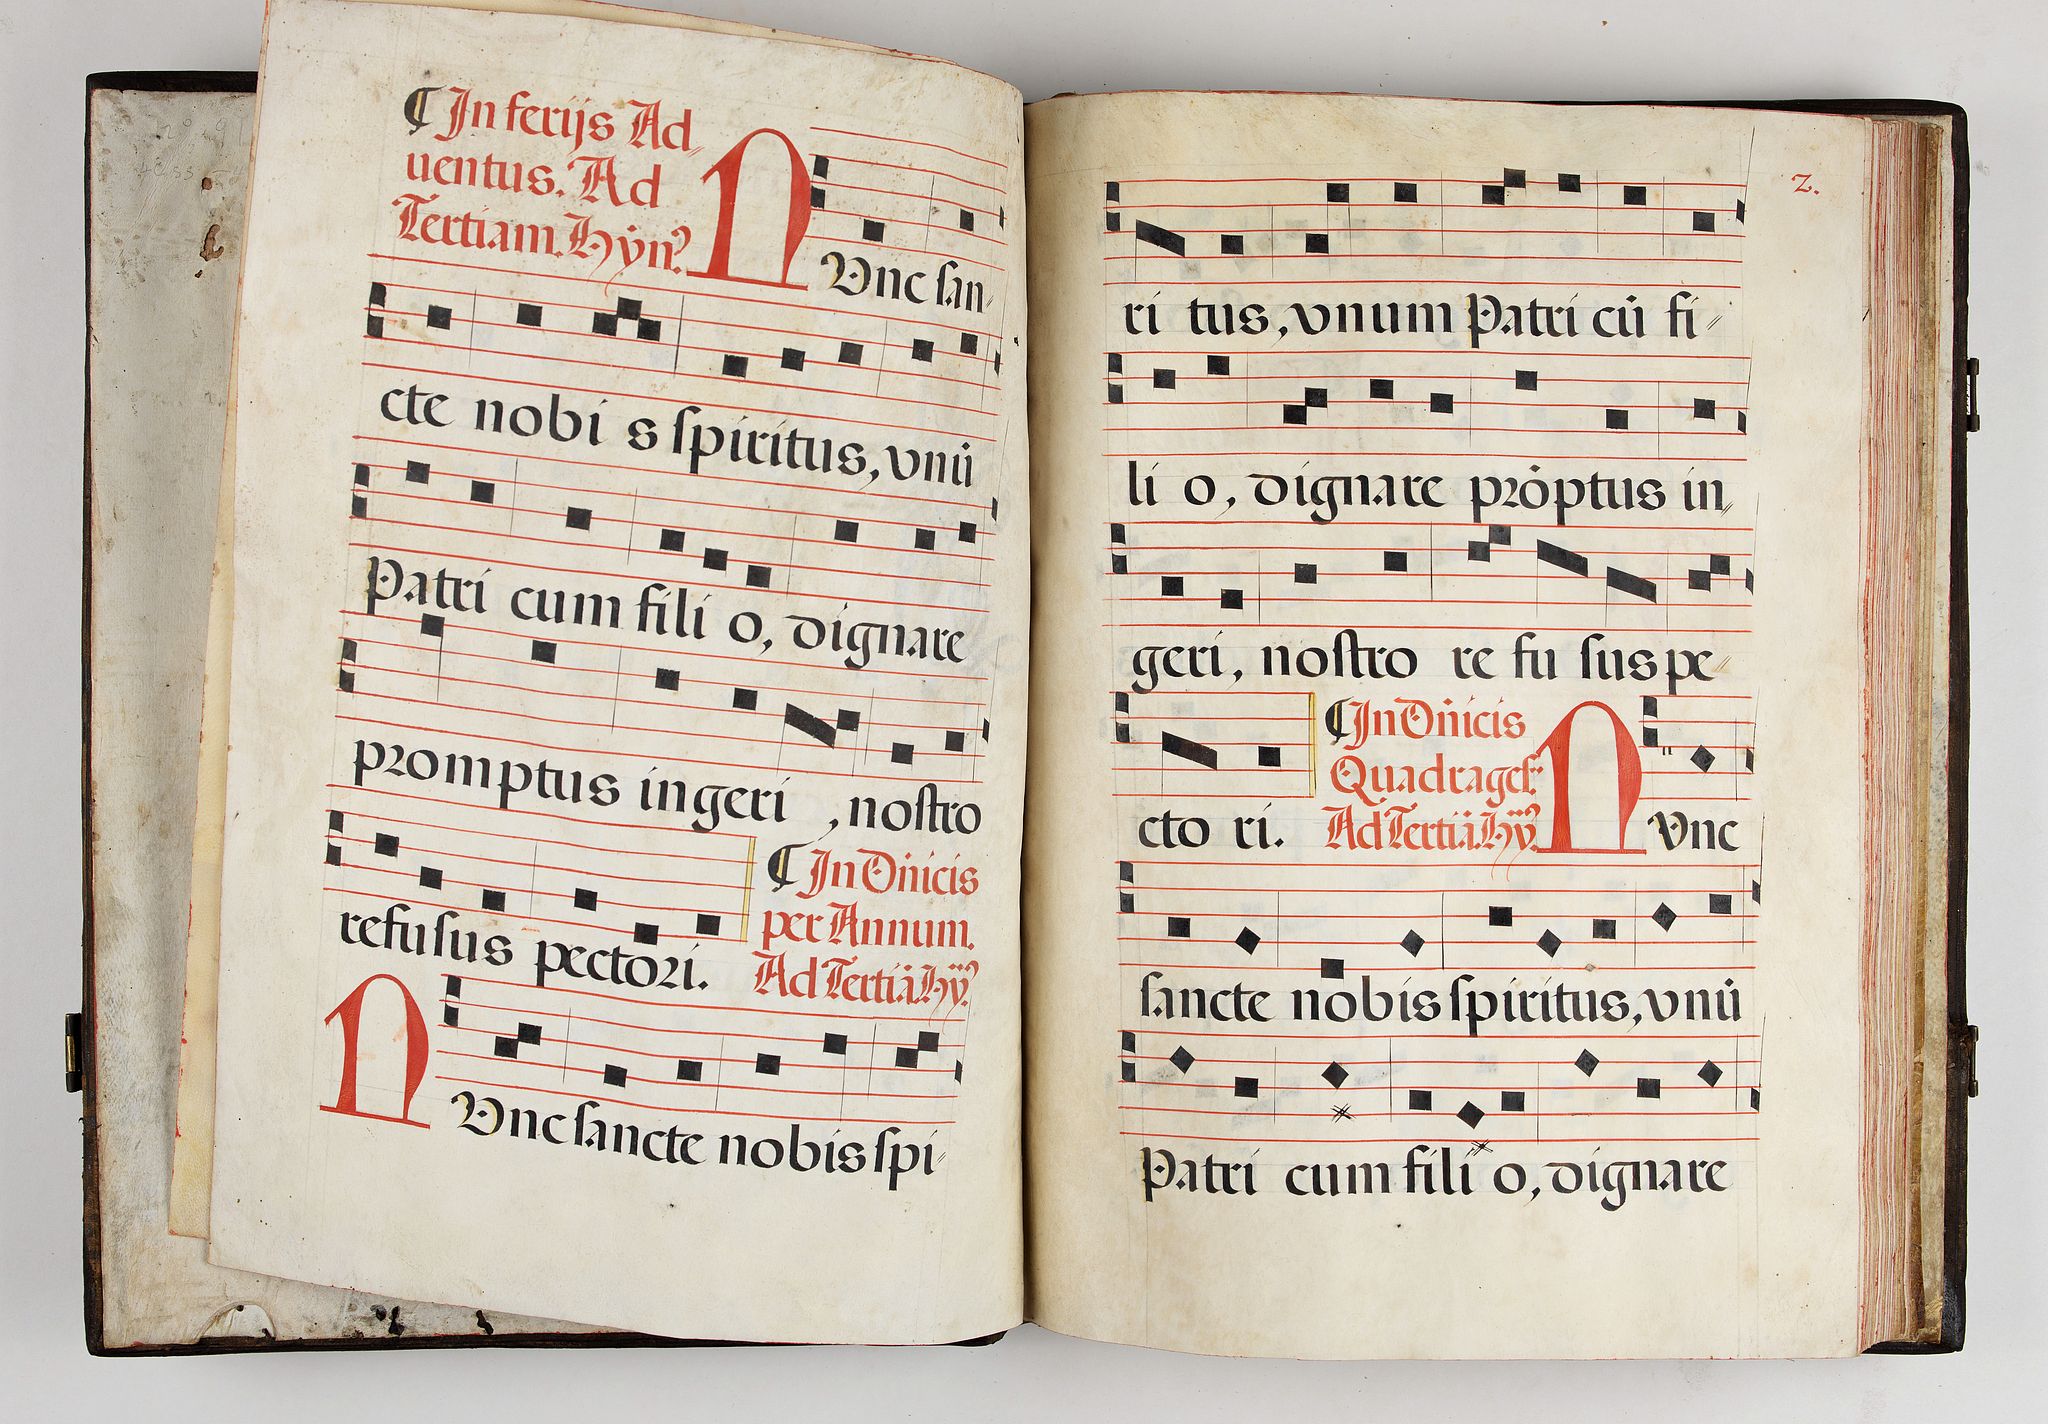 ¶ In ferijs Ad
uentus. Ad
Tertiam. Hyn?
NVnc san-
cte nobis spiritus, vnū
Patri cum filio, dignare
promptus ingeri, nostro
refusus pectori.
¶ In Dn̄icis
per Annum.
Ad Tertiā. Hy̅?
NVnc sancte nobis spi-
2.
ritus, vnum Patri cū fi-
lio, dignare prōptus in-
geri, nostro refusus pe-
ctori.
¶ In Dn̄icis
Quadrages:
Ad Tertiā. Hy̅?
NVnc
sancte nobis spiritus, vnū
Patri cum filio, dignare